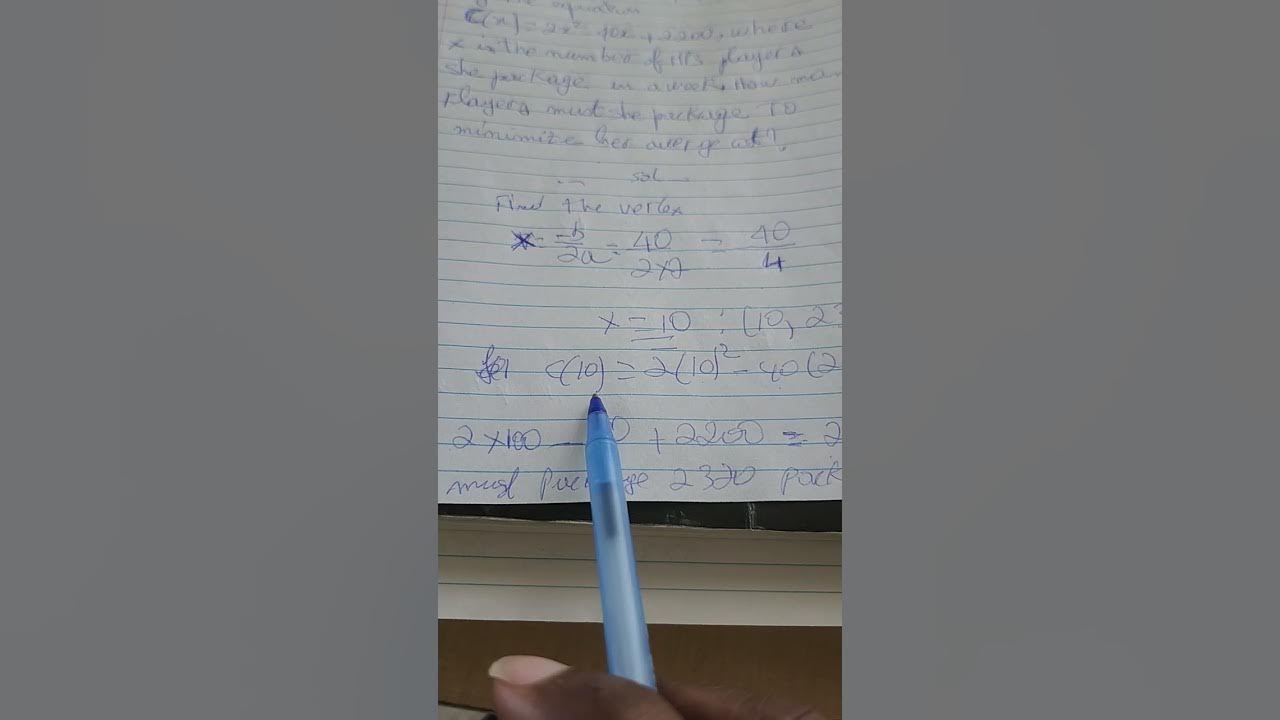 the equation
C(x) = 2x² - 40x + 2200, where
x is the number of MP3 players
she package in a week. How
players must she package TO
minimize her average cost?
sol
Find the vertex
x = -b/2a = 40/2×2 = 40/4
x = 10 : (10, 23
for C(10) = 2(10)² - 40(2
2×100 - 0 + 2200 = 2
must package 2320 pack